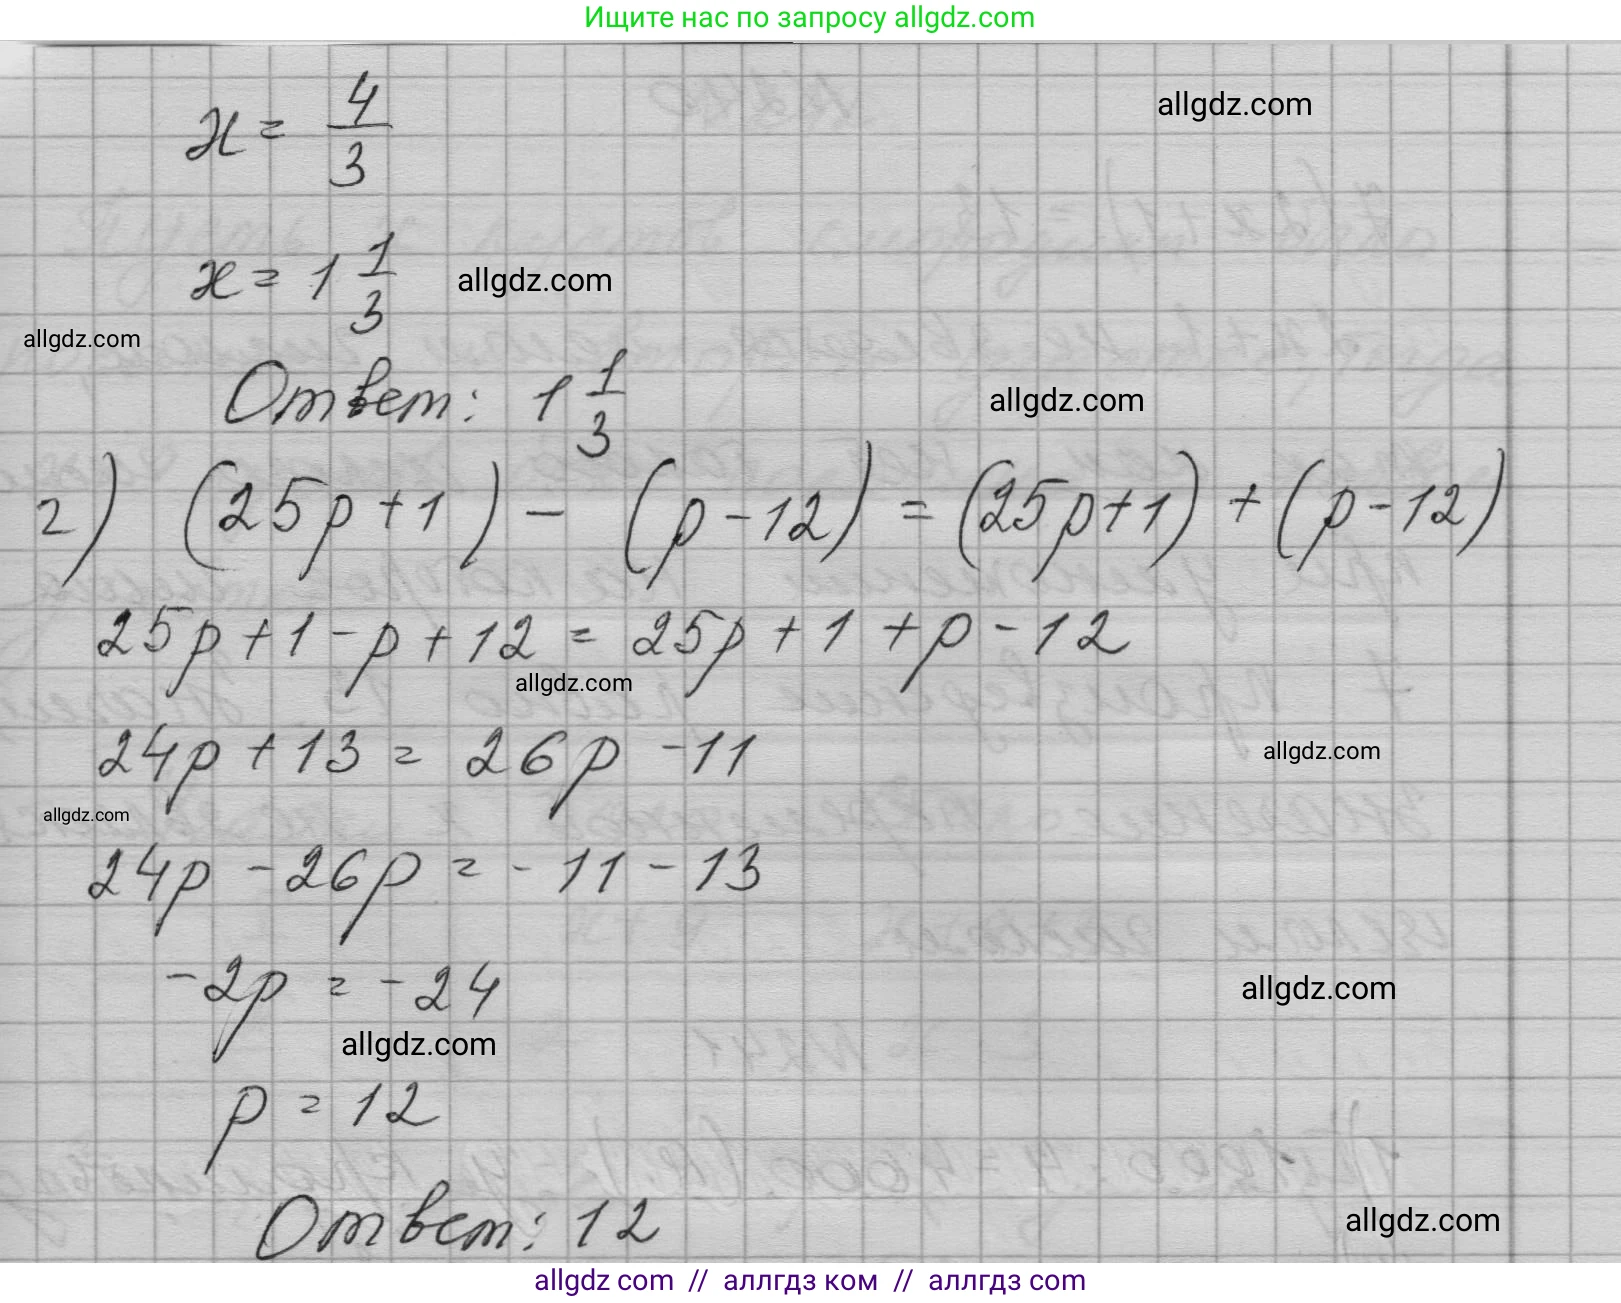 Ищите нас по запросу allgdz.com
x = 4/3
allgdz.com
x = 1 1/3
allgdz.com
allgdz.com
Ответ: 1 1/3
allgdz.com
г) (25p+1) - (p-12) = (25p+1) + (p-12)
25p+1-p+12 = 25p+1+p-12
allgdz.com
24p+13 = 26p-11
allgdz.com
allgdz.com
24p-26p = -11-13
-2p = -24
allgdz.com
allgdz.com
p = 12
Ответ: 12
allgdz.com
allgdz com // аллгдз ком // аллгдз com